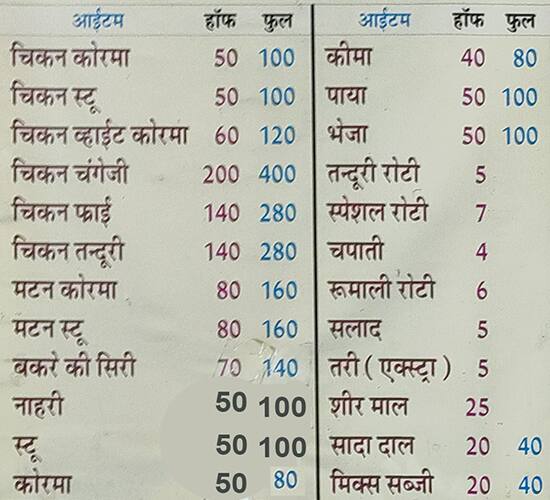 आईटम हॉफ फुल
चिकन कोरमा 50 100
चिकन स्टू 50 100
चिकन व्हाईट कोरमा 60 120
चिकन चंगेजी 200 400
चिकन फ्राई 140 280
चिकन तन्दूरी 140 280
मटन कोरमा 80 160
मटन स्टू 80 160
बकरे की सिरी 70 140
नाहरी 50 100
स्टू 50 100
कोरमा 50 80
आईटम हॉफ फुल
कीमा 40 80
पाया 50 100
भेजा 50 100
तन्दूरी रोटी 5
स्पेशल रोटी 7
चपाती 4
रूमाली रोटी 6
सलाद 5
तरी ( एक्स्ट्रा ) 5
शीर माल 25
सादा दाल 20 40
मिक्स सब्जी 20 40